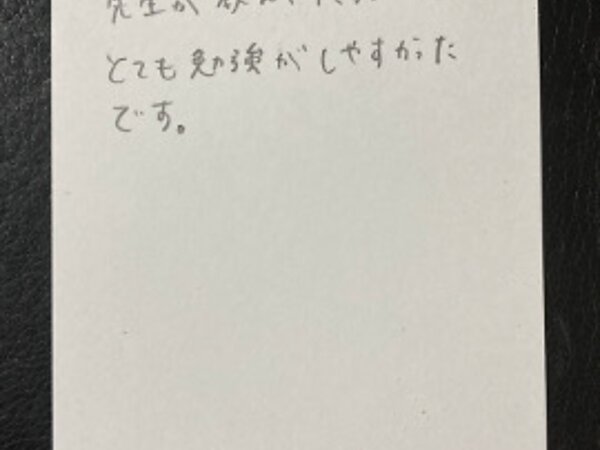 先生が
とても勉強がしやすかった
です。